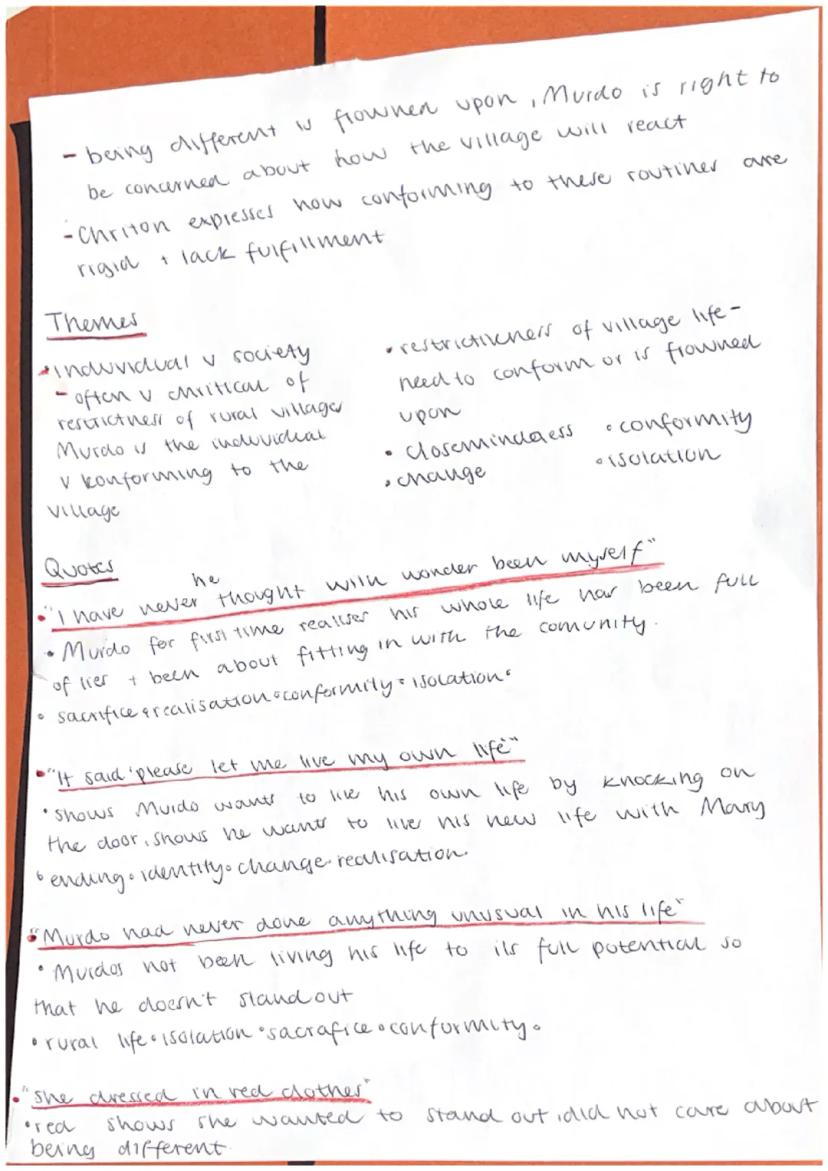 - being different is frowned upon, Murdo is right to
be concerned about how the village will react
- Chriton expresses how conforming to these routines are
rigid + lack fulfillment
Themes
• individual v society
- often v chritical of
restrictness of rural village
Murdo is the individual
v konforming to the
village
• restrictivness of village life -
need to conform or is frowned
upon
• closemindness • conformity
• change • isolation
Quotes
• "I have never he thought with wonder been myself"
• Murdo for first time realises his whole life has been full
of lies + been about fitting in with the comunity.
• sacrifice • realisation • conformity • isolation •
• "It said 'please let me live my own life"
• shows Murdo wants to live his own life by knocking on
the door, shows he wants to live his new life with Mary
• ending • identity • change • realisation.
• "Murdo had never done anything unusual in his life"
• Murdos not been living his life to its full potential so
that he doesn't stand out
• rural life • isolation • sacrafice • conformity •
• "she dressed in red clothes"
• red shows she wanted to stand out, did not care about
being different.